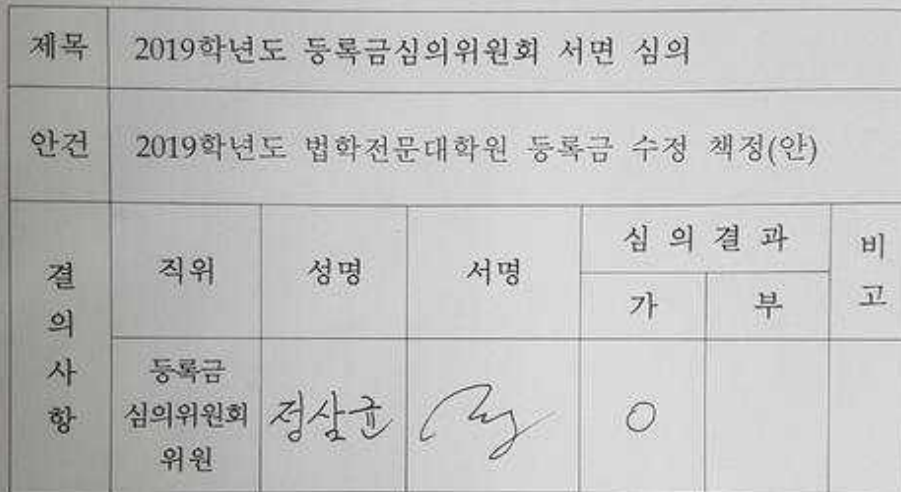 제목 2019학년도 등록금심의위원회 서면 심의
안건 2019학년도 법학전문대학원 등록금 수정 책정(안)
결의사항
직위 성명 서명 심의결과 비고
가 부
등록금
심의위원회
위원
정상균
○